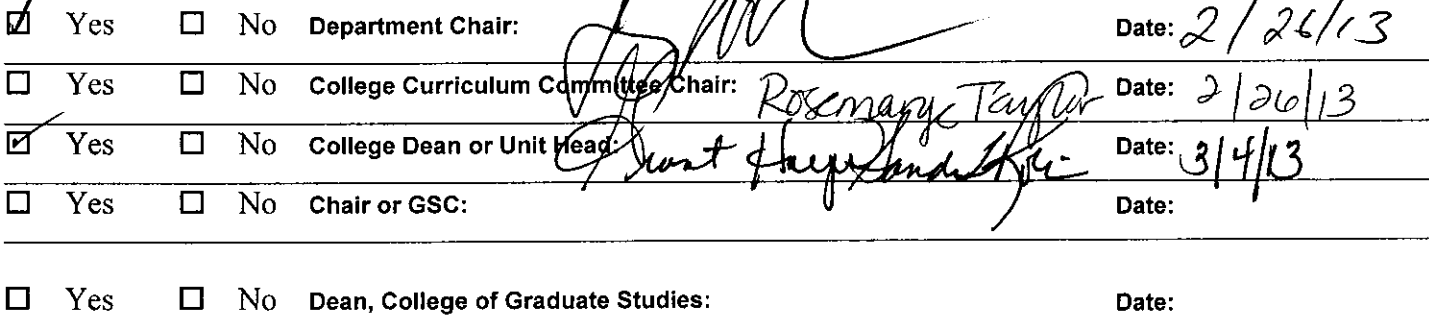 ☑ Yes ☐ No Department Chair: Date: 2/26/13
☐ Yes ☐ No College Curriculum Committee Chair: Rosemarye Taylor Date: 2/26/13
☑ Yes ☐ No College Dean or Unit Head: Date: 3/4/13
☐ Yes ☐ No Chair or GSC: Date:
☐ Yes ☐ No Dean, College of Graduate Studies: Date: